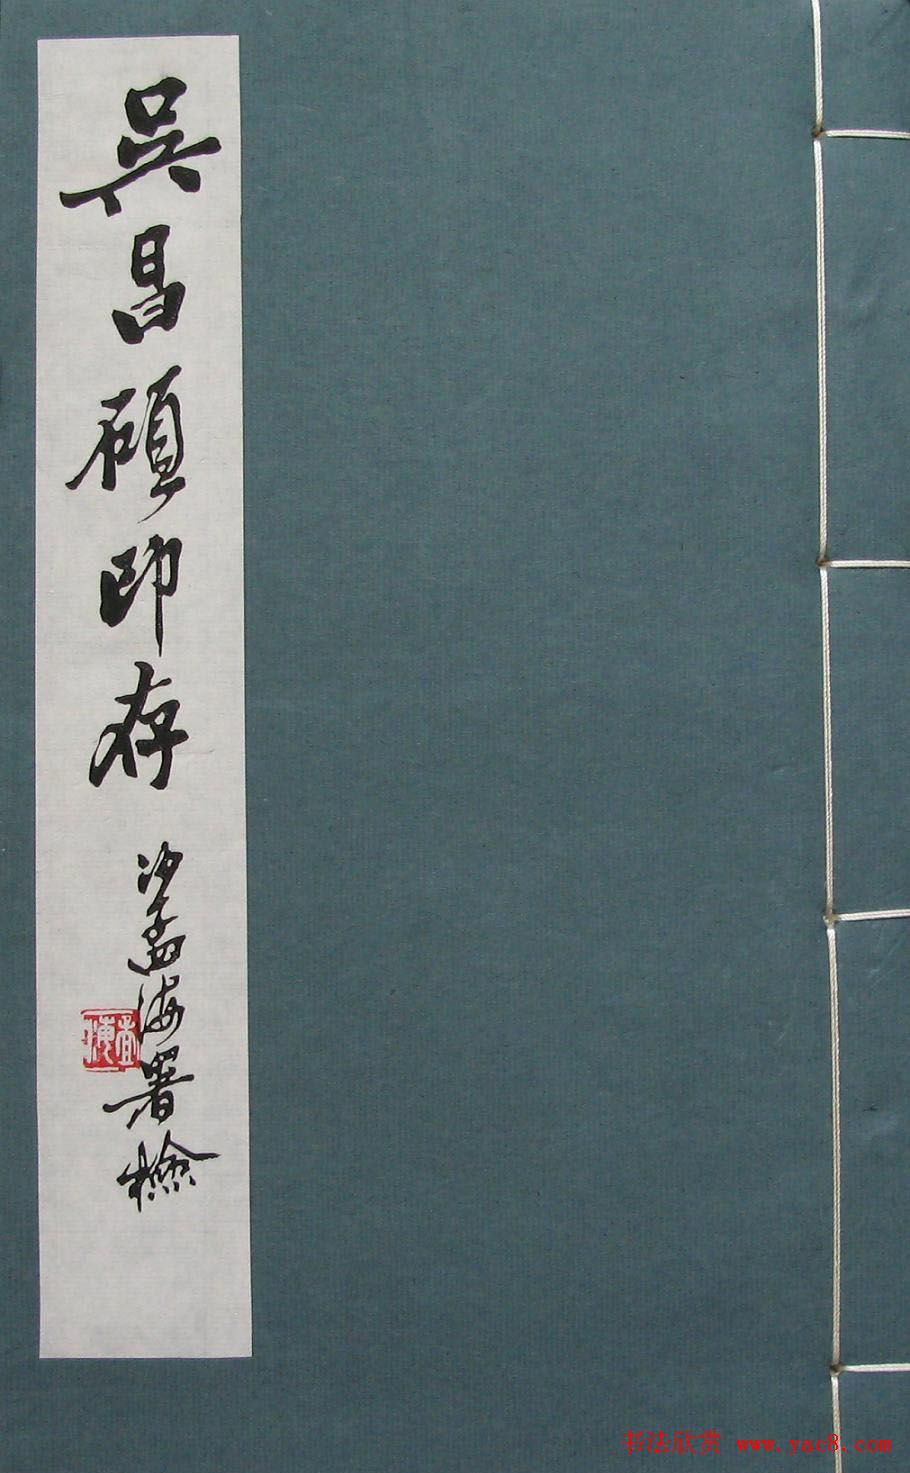 吳昌碩印存
沙孟海署檢
书法欣赏 www.yac8.com